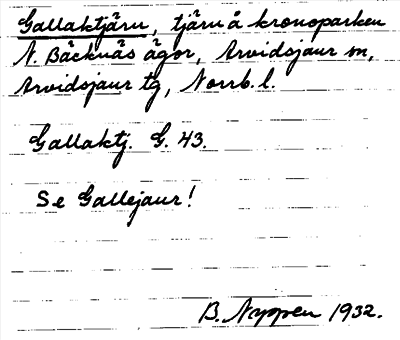 Gallaktjärn, tjärn å kronoparken
N. Bäcknäs ägor, Arvidsjaur sn,
Arvidsjaur tg, Norrb. l.
Gallaktj. G. 43.
Se Gallejaur!
B. Nyppen 1932.